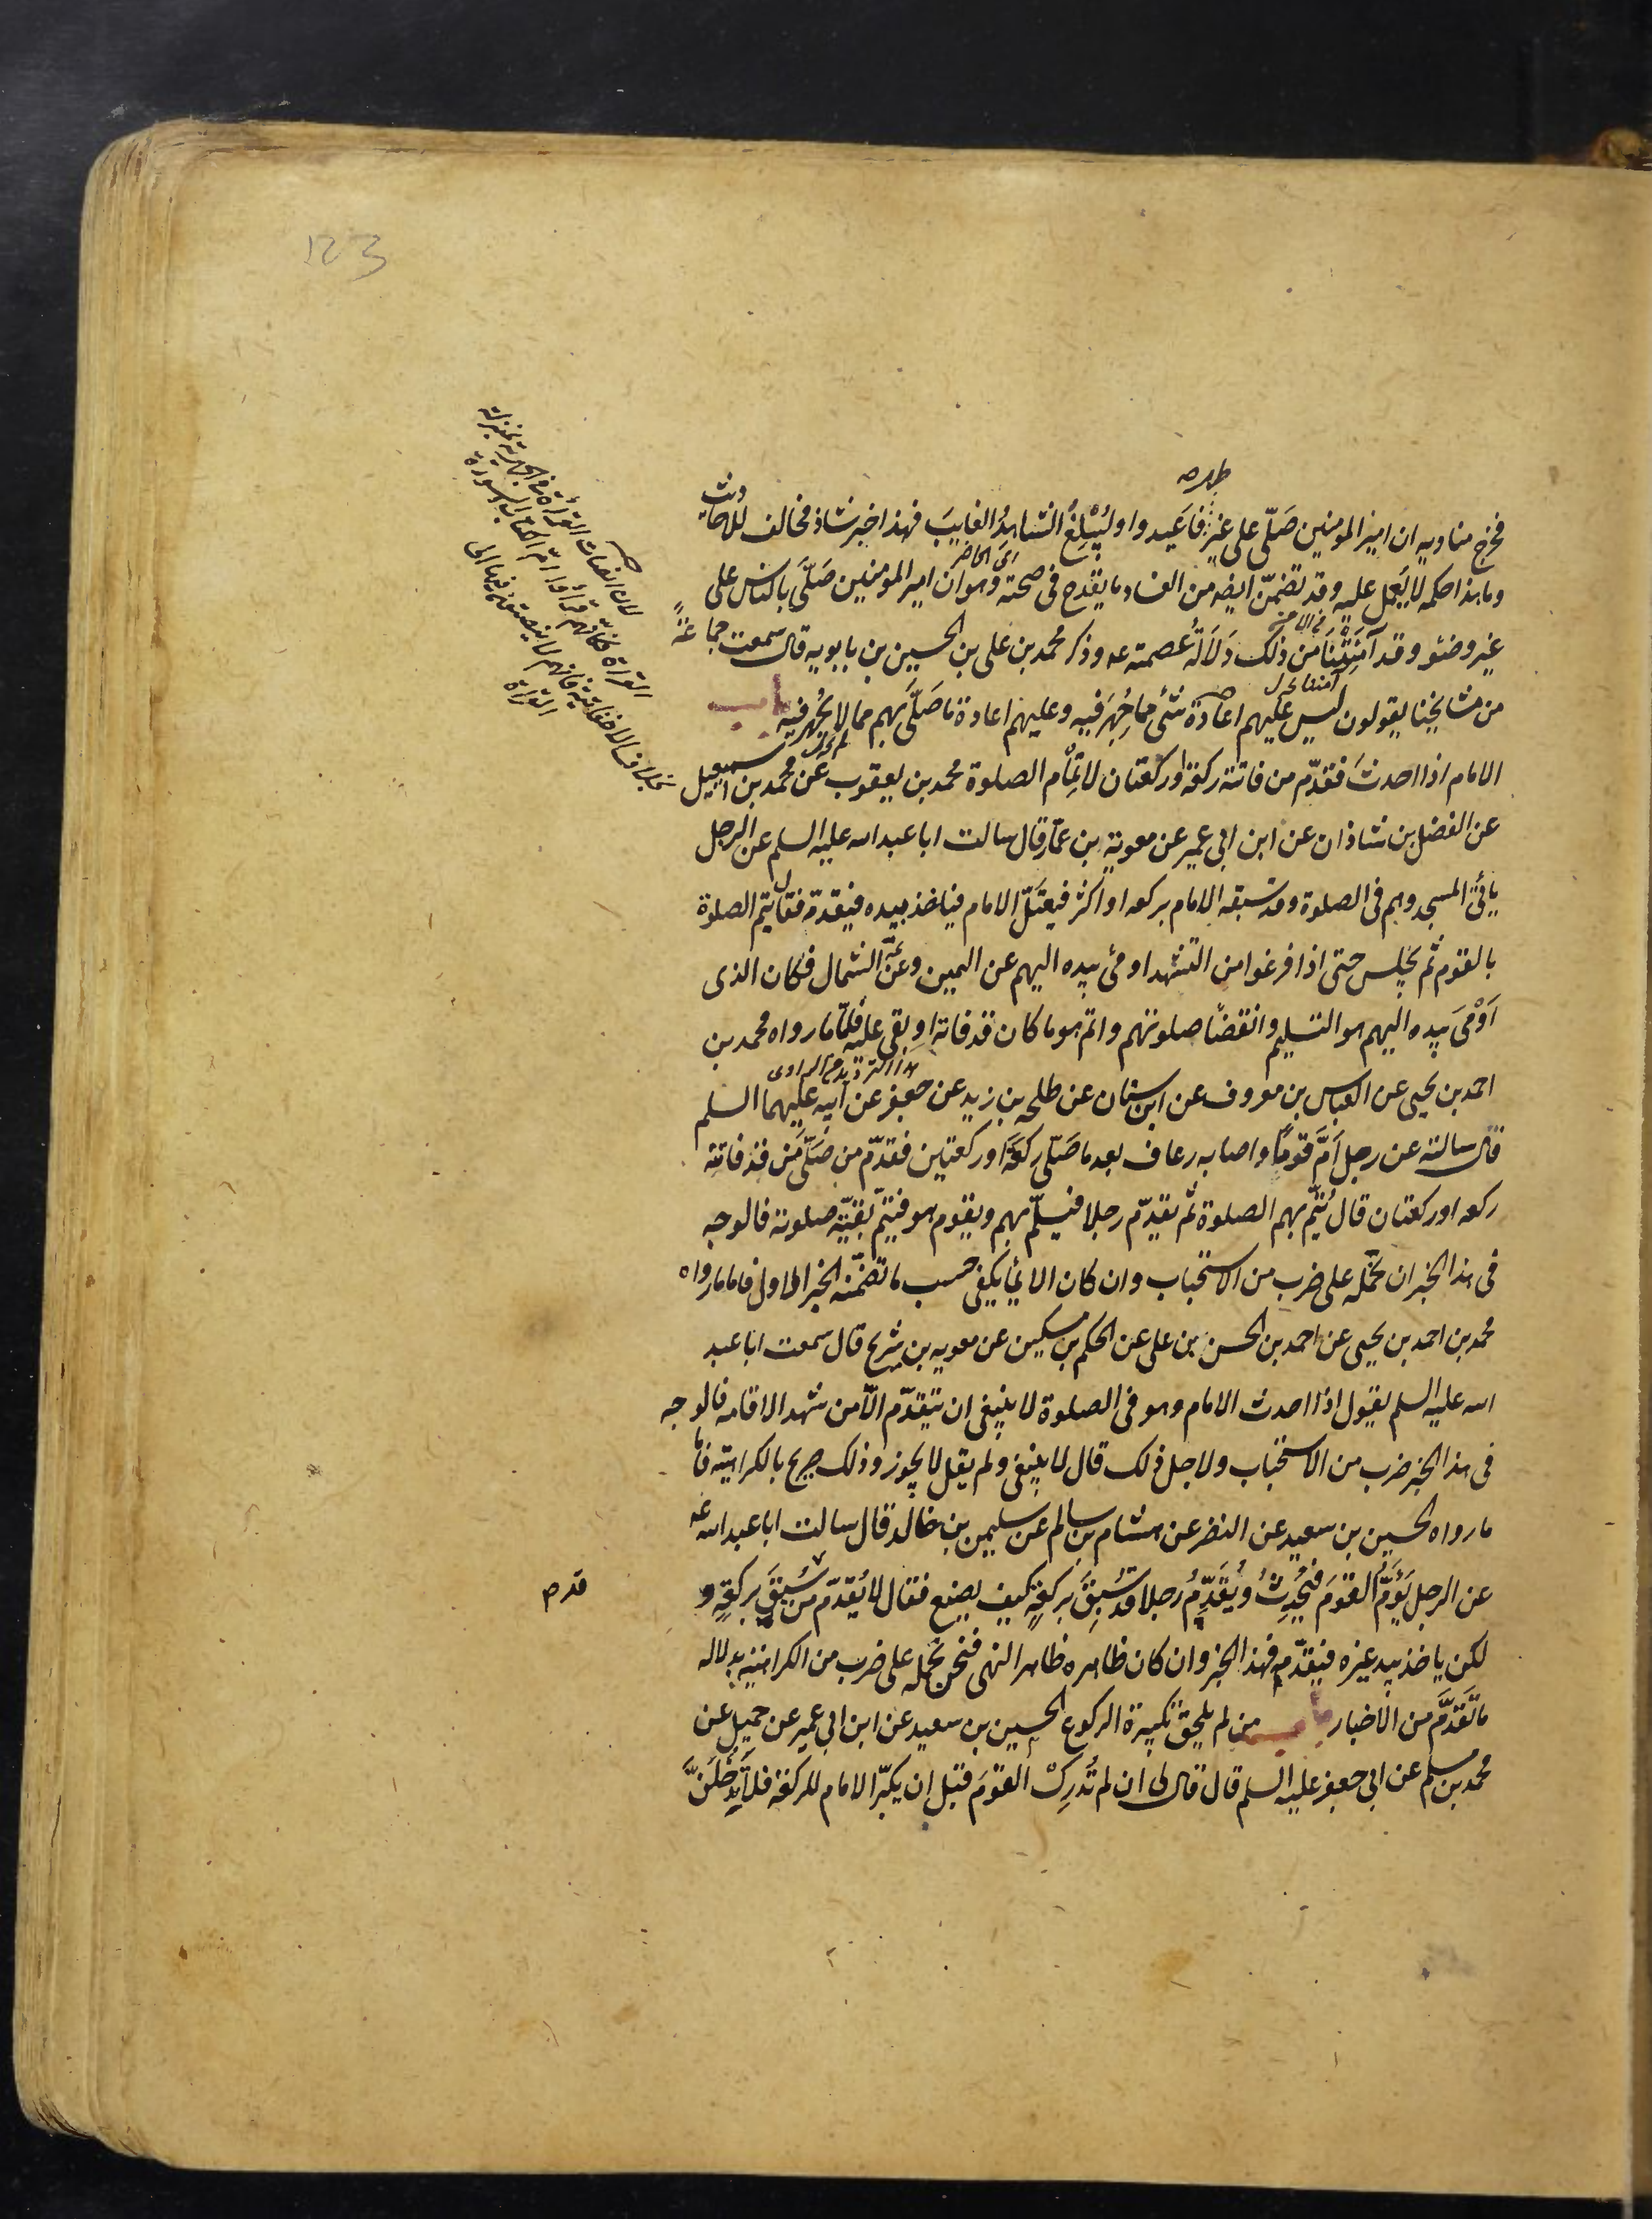 123
طهر ص
فخرج مناديه ان امير المومنين صَلّى على غير فاَعيدوا وليُبْلغُ الشاهدُ الغايبَ فهذا خبر شاذ مخالف للاحاديث
اى الحاضر
وما هذا حكمه لا يُعمل عليه وقد تضمّن ايضه من الفساد ما يقدح فى صحته وهو ان امير المومنين صَلّى بالناس على
غير وضئو وقد آمَنَتْنَا من ذلك دَلَالَةُ عصمته عه وذكر محمد بن على بن الحسين بن بابويه قال سمعت جماعةً
من مشايخنا يقولون ليس عليهم اعادة شئ مما جُهِرَ فيه وعليهم اعادة ما صَلّى بهم مما لا يُجْهر فيه باب
الامام اذا احدث فقدّم من فاتته ركعة او ركعتان لاتمام الصلوة محمد بن يعقوب عن محمد بن اسمعيل
عن الفضل بن شاذان عن ابن ابى عمير عن معوية بن عمّار قال سالت ابا عبد الله عليه السلم عن الرجل
ياتى المسجد وهم فى الصلوة وقد سَبقه الامام بركعه او اكثر فيعتَلّ الامام فياخذ بيده فيقدمّه فقال يتم الصلوة
بالقوم ثم يجلس حتى اذا فرغوا من التشهد اومئ بيده اليهم عن اليمين وعن الشمال فكان الذى
اَوْمَى بيده اليهم هو التسليم وانقضاَ صلوتهم واتم هو ما كان قد فاته او بقى عليه فامّا ما رواه محمد بن
هذا الترديد من الراوى
احمد بن يحيى عن العباس بن معروف عن ابن سنان عن طلحه بن زيد عن جعفر عن ابيه عليهما السلم
قال سالته عن رجل اَمَّ قومًا واصابه رعاف بعد ما صَلّى ركعَةً او ركعتين فقدّم من صَلّى ممّن قد فاتته
ركعه او ركعتان قال يُتمّ بهم الصلوة ثم يقدّم رجلا فيسلّم بهم ويقوم هو فيتمّ بَقيّة صلوته فالوجه
فى هذا الخبر ان نحمله على ضرب من الاستحباب وان كان الايماَ يكفى حسب ما تضمّنه الخبر الاول فاما ما رواه
محمد بن احمد بن يحيى عن احمد بن الحسن بن على عن الحكم بن مسكين عن معويه بن شريح قال سمعت ابا عبد
الله عليه السلم يقول اذا احدث الامام وهو فى الصلوة لا ينبغى ان يتقدّم الّا من شهد الاقامه فالوجه
فى هذا الخبر ضرب من الاستحباب ولاجل ذلك قال لا ينبغى ولم يقل لا يجوز وذلك صريح بالكراهية فامّا
ما رواه الحسين بن سعيد عن النضر عن هشام بن سالم عن سليمن بن خالد قال سالت ابا عبد الله عه
عن الرجل يَؤمّ القومَ فيُحدِثُ ويُقَدِّمُ رجلا قد سُبِقَ بركعةٍ كيف يصنع فقال لا يُقدّم من سُبِقَ بركعةٍ و
لكن ياخذ بيد غيره فيقدّمه فهذا الخبر وان كان ظاهره ظاهر النهى فنحن نحمله على ضرب من الكراهية بدلاله
ما تَقدَّم من الاخبار باب من لم يلحق تكبيرة الركوع الحسين بن سعيد عن ابن ابى عمير عن جميل عن
محمد بن مسلم عن ابى جعفر عليه السلم قال قال لى ان لم تُدرِكْ القومَ قبل ان يكبّر الامام للركعة فلا تَدْخُلَنَّ
القراة كانّهم قراوا امّ الكتاب والسورة
بخلاف الاخفاتية فانهم لا
القراة